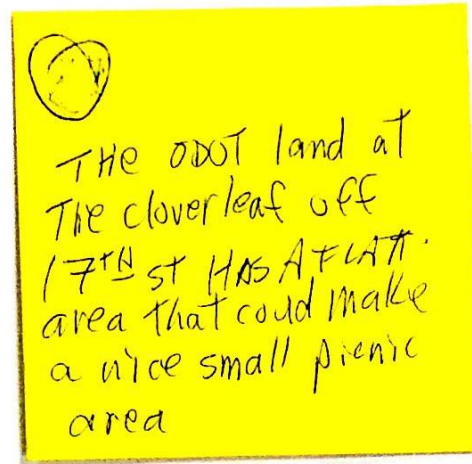 THE ODOT land at
The cloverleaf off
17TH st HAS A FLATT.
area that could make
a nice small picnic
area